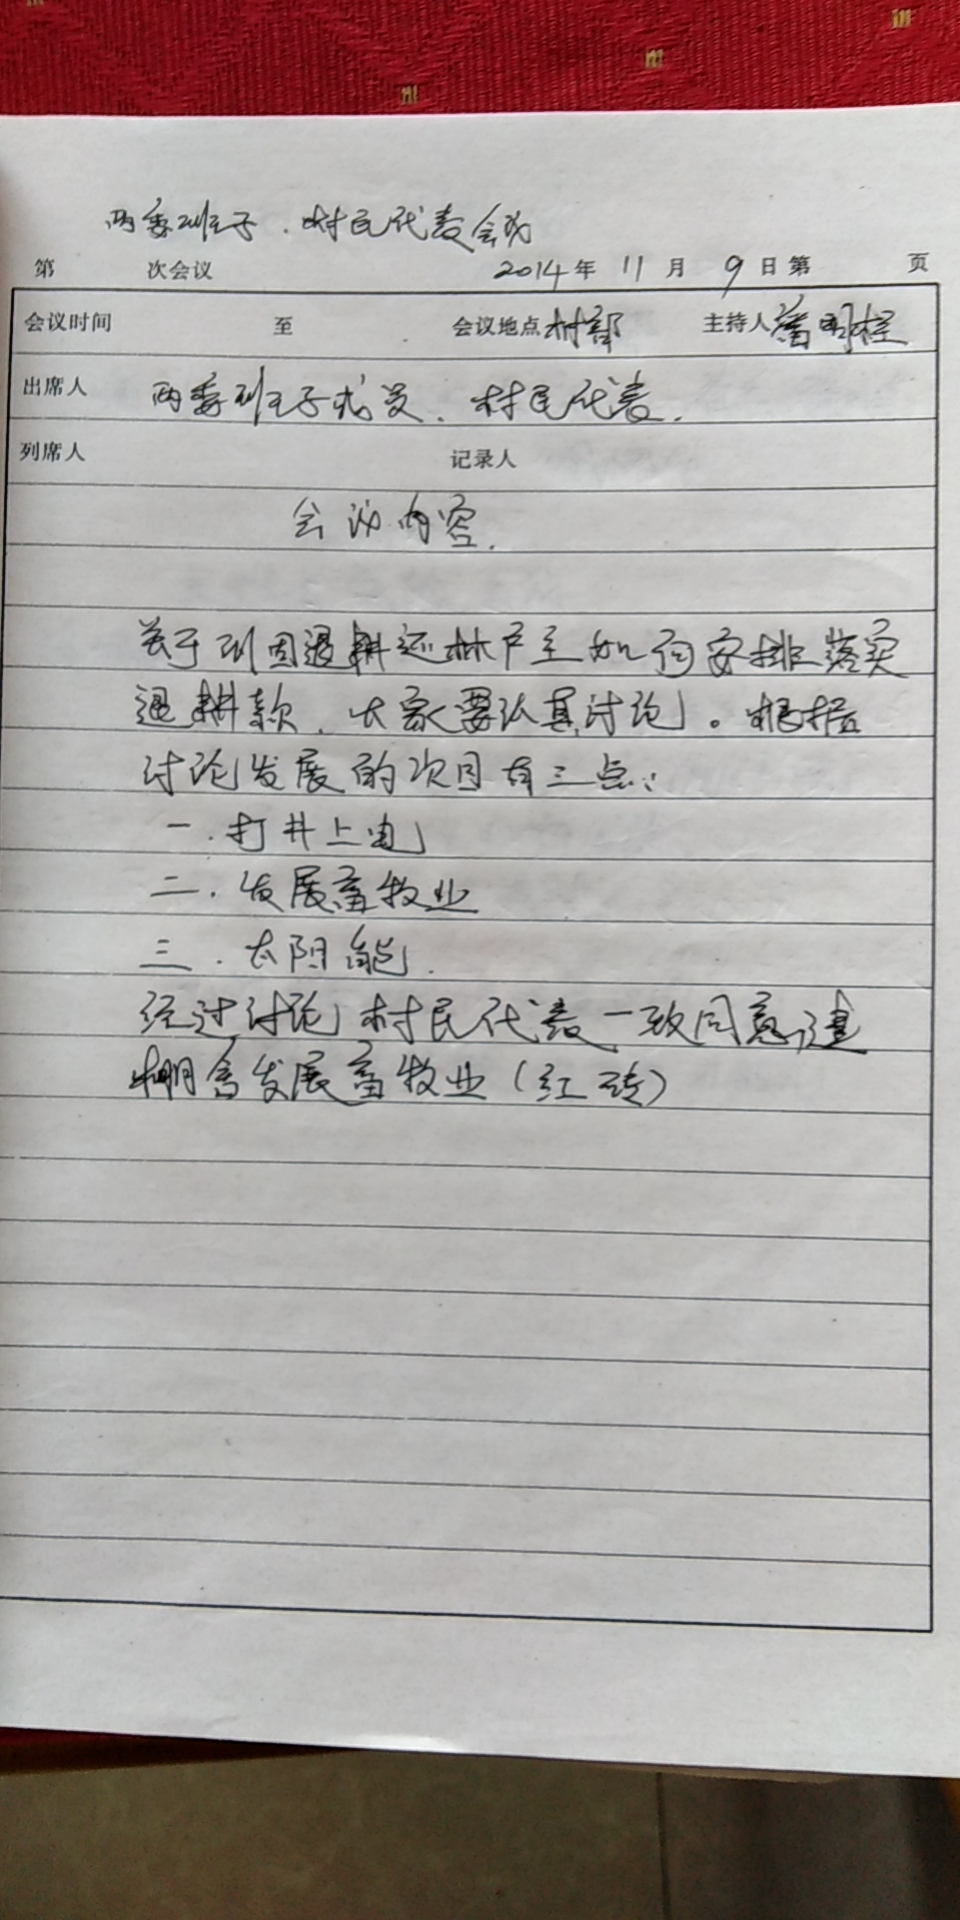 两委班子、村民代表会议
第 次会议 2014年 11月 9日第 页
会议时间 至 会议地点 村部 主持人 潘明
出席人 两委班子成员、村民代表.
列席人 记录人
会议内容.
关于巩固退耕还林户主如何安排落实
退耕款、大家要认真讨论。根据
讨论发展的项目有三点：
一.打井上电
二.发展畜牧业
三.太阳能.
经过讨论村民代表一致同意建
棚舍发展畜牧业（红砖）